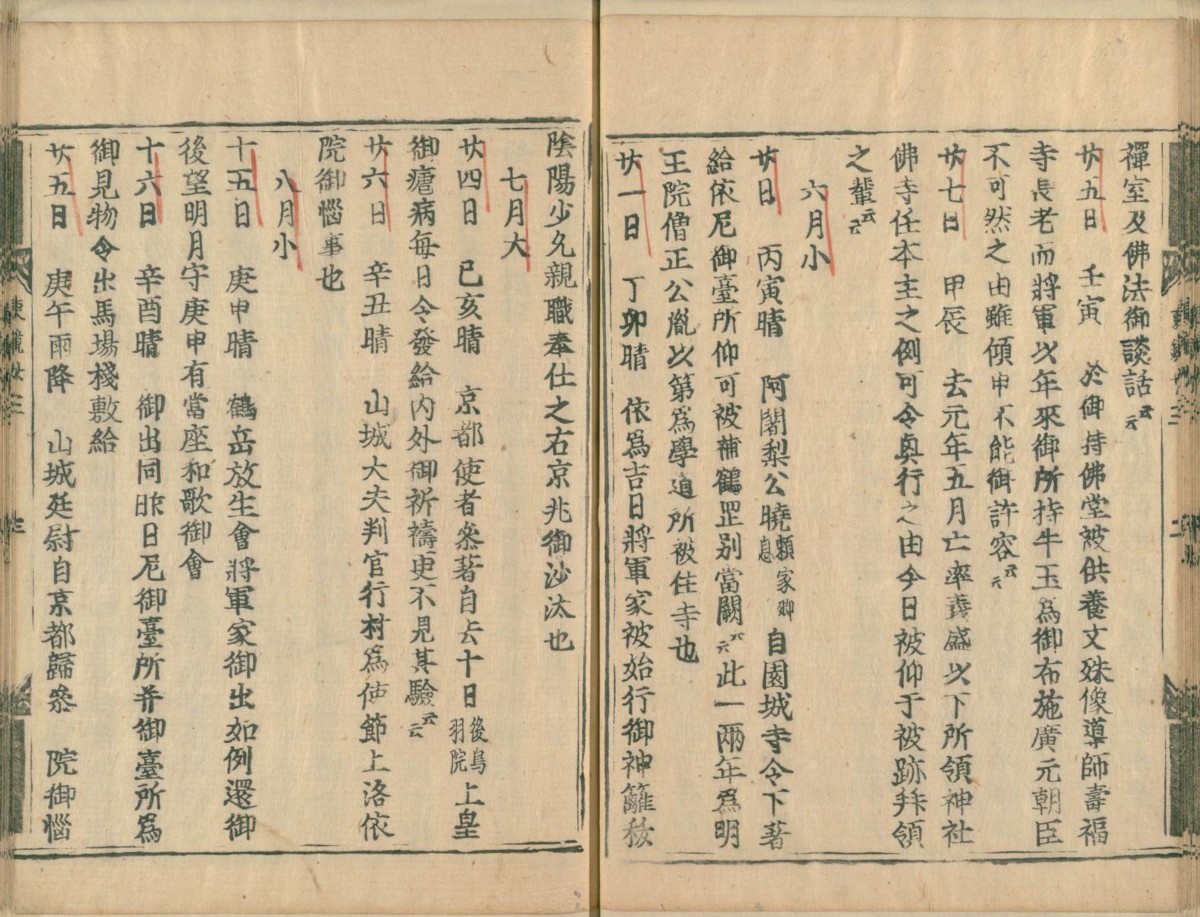 禪室及佛法御談話云云
廿五日　壬寅　於御持佛堂被供養文殊像導師壽福
寺長老而將軍以年來御所持牛玉爲御布施廣元朝臣
不可然之由雖傾申不能御許容云云
廿七日　甲辰　去元年五月亡卒義盛以下所領神社
佛寺任本主之例可令興行之由今日被仰于被跡拜領
之輩云云
六月小
廿日　丙寅晴　阿闍梨公曉賴家卿息自園城寺令下著
給依尼御臺所仰可被補鶴岡別當闕云云此一兩年爲明
王院僧正公胤以第爲學道所被住寺也
廿一日　丁卯晴　依爲吉日將軍家被始行御神籬祓
陰陽少允親職奉仕之右京兆御沙汰也
七月大
廿四日　己亥晴　京都使者參著自去十日後鳥羽院上皇
御瘧病每日令發給内外御祈禱更不見其驗云云
廿六日　辛丑晴　山城大夫判官行村爲使節上洛依
院御惱事也
八月小
十五日　庚申晴　鶴岳放生會將軍家御出如例還御
後望明月守庚申有當座和歌御會
十六日　辛酉晴　御出同昨日尼御臺所并御臺所爲
御見物令出馬場棧敷給
廿五日　庚午雨降　山城廷尉自京都歸參　院御惱